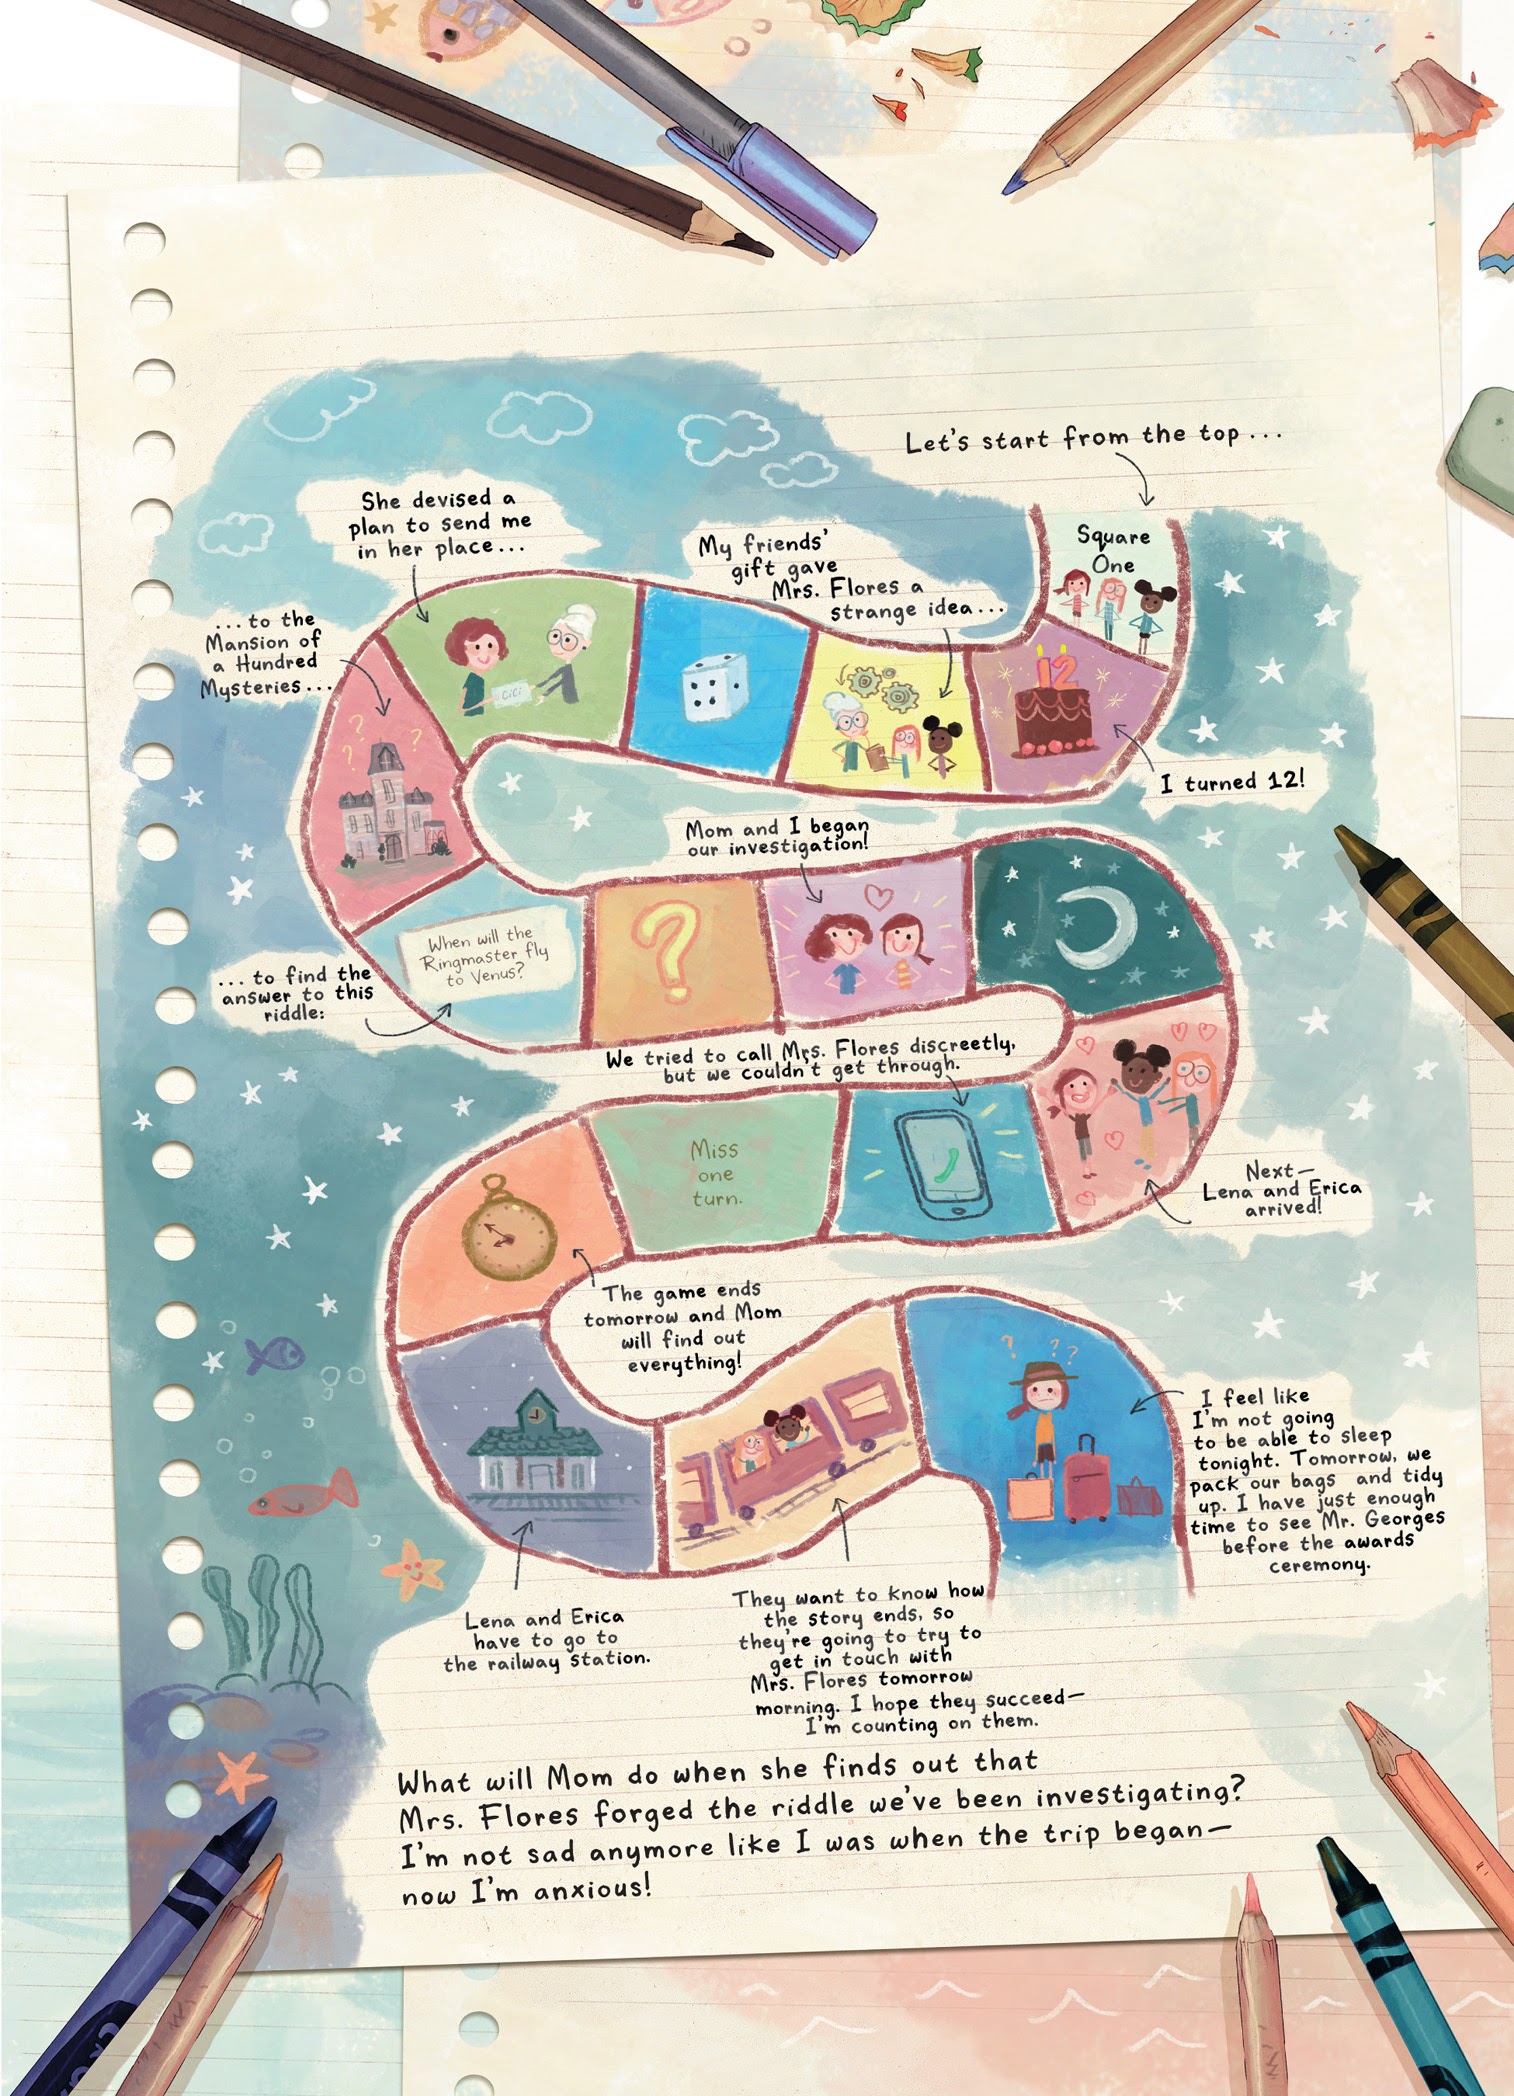 Let's start from the top...
Square
One
I turned 12!
My friends'
gift gave
Mrs. Flores a
strange idea...
She devised a
plan to send me
in her place...
CiCi
...to the
Mansion of
a Hundred
Mysteries...
...to find the
answer to this
riddle:
When will the
Ringmaster fly
to Venus?
Mom and I began
our investigation!
Next—
Lena and Erica
arrived!
We tried to call Mrs. Flores discreetly,
but we couldn't get through.
Miss
one
turn.
The game ends
tomorrow and Mom
will find out
everything!
Lena and Erica
have to go to
the railway station.
They want to know how
the story ends, so
they're going to try to
get in touch with
Mrs. Flores tomorrow
morning. I hope they succeed—
I'm counting on them.
I feel like
I'm not going
to be able to sleep
tonight. Tomorrow, we
pack our bags and tidy
up. I have just enough
time to see Mr. Georges
before the awards
ceremony.
What will Mom do when she finds out that
Mrs. Flores forged the riddle we've been investigating?
I'm not sad anymore like I was when the trip began—
now I'm anxious!